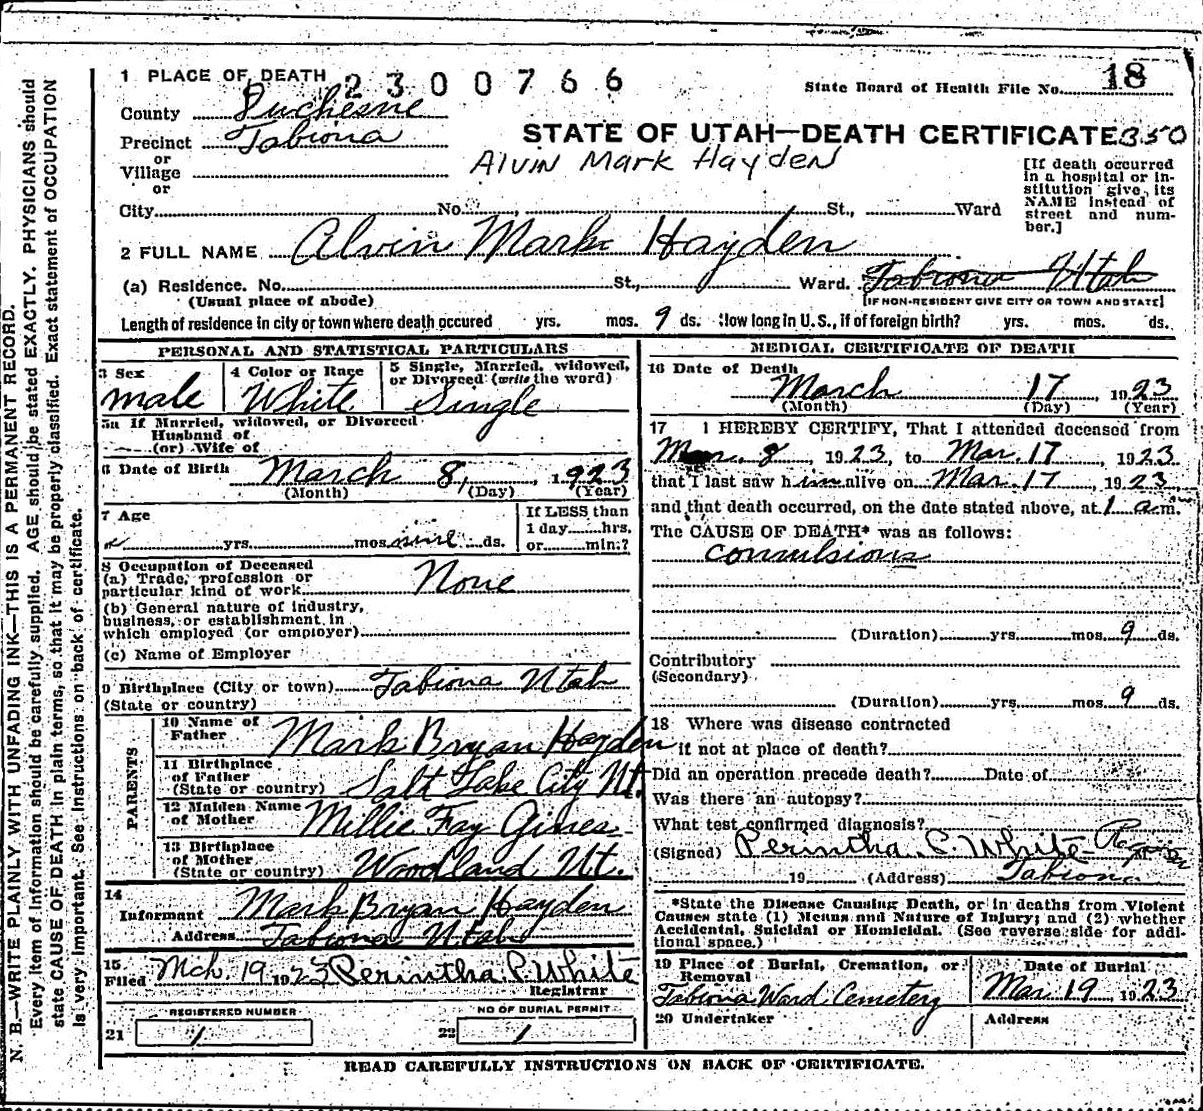 1 PLACE OF DEATH 2300766
State Board of Health File No. 18
County Duchesne
Precinct Tabiona
or
Village
or
STATE OF UTAH—DEATH CERTIFICATE 350
Alvin Mark Hayden
[If death occurred in a hospital or institution give its NAME instead of street and number.]
City No. St., Ward
2 FULL NAME Alvin Mark Hayden
(a) Residence. No. St., Ward. Tabiona Utah
(Usual place of abode) [IF NON-RESIDENT GIVE CITY OR TOWN AND STATE]
Length of residence in city or town where death occured yrs. mos. 9 ds. How long in U. S., if of foreign birth? yrs. mos. ds.
PERSONAL AND STATISTICAL PARTICULARS
3 Sex male
4 Color or Race White
5 Single, Married, widowed, or Divorced (write the word) Single
5a If Married, widowed, or Divorced
Husband of
(or) Wife of
6 Date of Birth March 8, 1923
(Month) (Day) (Year)
7 Age yrs. mos. nine ds.
If LESS than
1 day hrs.
or min.?
8 Occupation of Deceased
(a) Trade, profession or
particular kind of work None
(b) General nature of industry,
business, or establishment in
which employed (or employer)
(c) Name of Employer
9 Birthplace (City or town) Tabiona Utah
(State or country)
PARENTS
10 Name of Father Mark Bryan Hayden
11 Birthplace of Father (State or country) Salt Lake City Ut.
12 Maiden Name of Mother Millie Fay Gines
13 Birthplace of Mother (State or country) Woodland Ut.
14
Informant Mark Bryan Hayden
Address Tabiona Utah
15
Filed Mch. 19 1923 Perintha P. White
Registrar
REGISTERED NUMBER
21 1
NO OF BURIAL PERMIT
22 1
MEDICAL CERTIFICATE OF DEATH
16 Date of Death
March 17, 1923
(Month) (Day) (Year)
17 I HEREBY CERTIFY, That I attended deceased from
Mar. 8, 1923, to Mar. 17, 1923
that I last saw him alive on Mar. 17, 1923
and that death occurred, on the date stated above, at 1 a.m.
The CAUSE OF DEATH* was as follows:
convulsions
(Duration) yrs. mos. 9 ds.
Contributory
(Secondary)
(Duration) yrs. mos. 9 ds.
18 Where was disease contracted
if not at place of death?
Did an operation precede death? Date of
Was there an autopsy?
What test confirmed diagnosis?
(Signed) Perintha P. White
19 (Address) Tabiona
*State the Disease Causing Death, or in deaths from Violent
Causes state (1) Means and Nature of Injury; and (2) whether
Accidental, Suicidal or Homicidal. (See reverse side for addi-
tional space.)
19 Place of Burial, Cremation, or Removal Date of Burial
Tabiona Ward Cemetery Mar 19, 1923
20 Undertaker Address
READ CAREFULLY INSTRUCTIONS ON BACK OF CERTIFICATE.
N. B.—WRITE PLAINLY WITH UNFADING INK—THIS IS A PERMANENT RECORD.
Every item of information should be carefully supplied. AGE should be stated EXACTLY. PHYSICIANS should
state CAUSE OF DEATH in plain terms, so that it may be properly classified. Exact statement of OCCUPATION
is very important. See instructions on back of certificate.